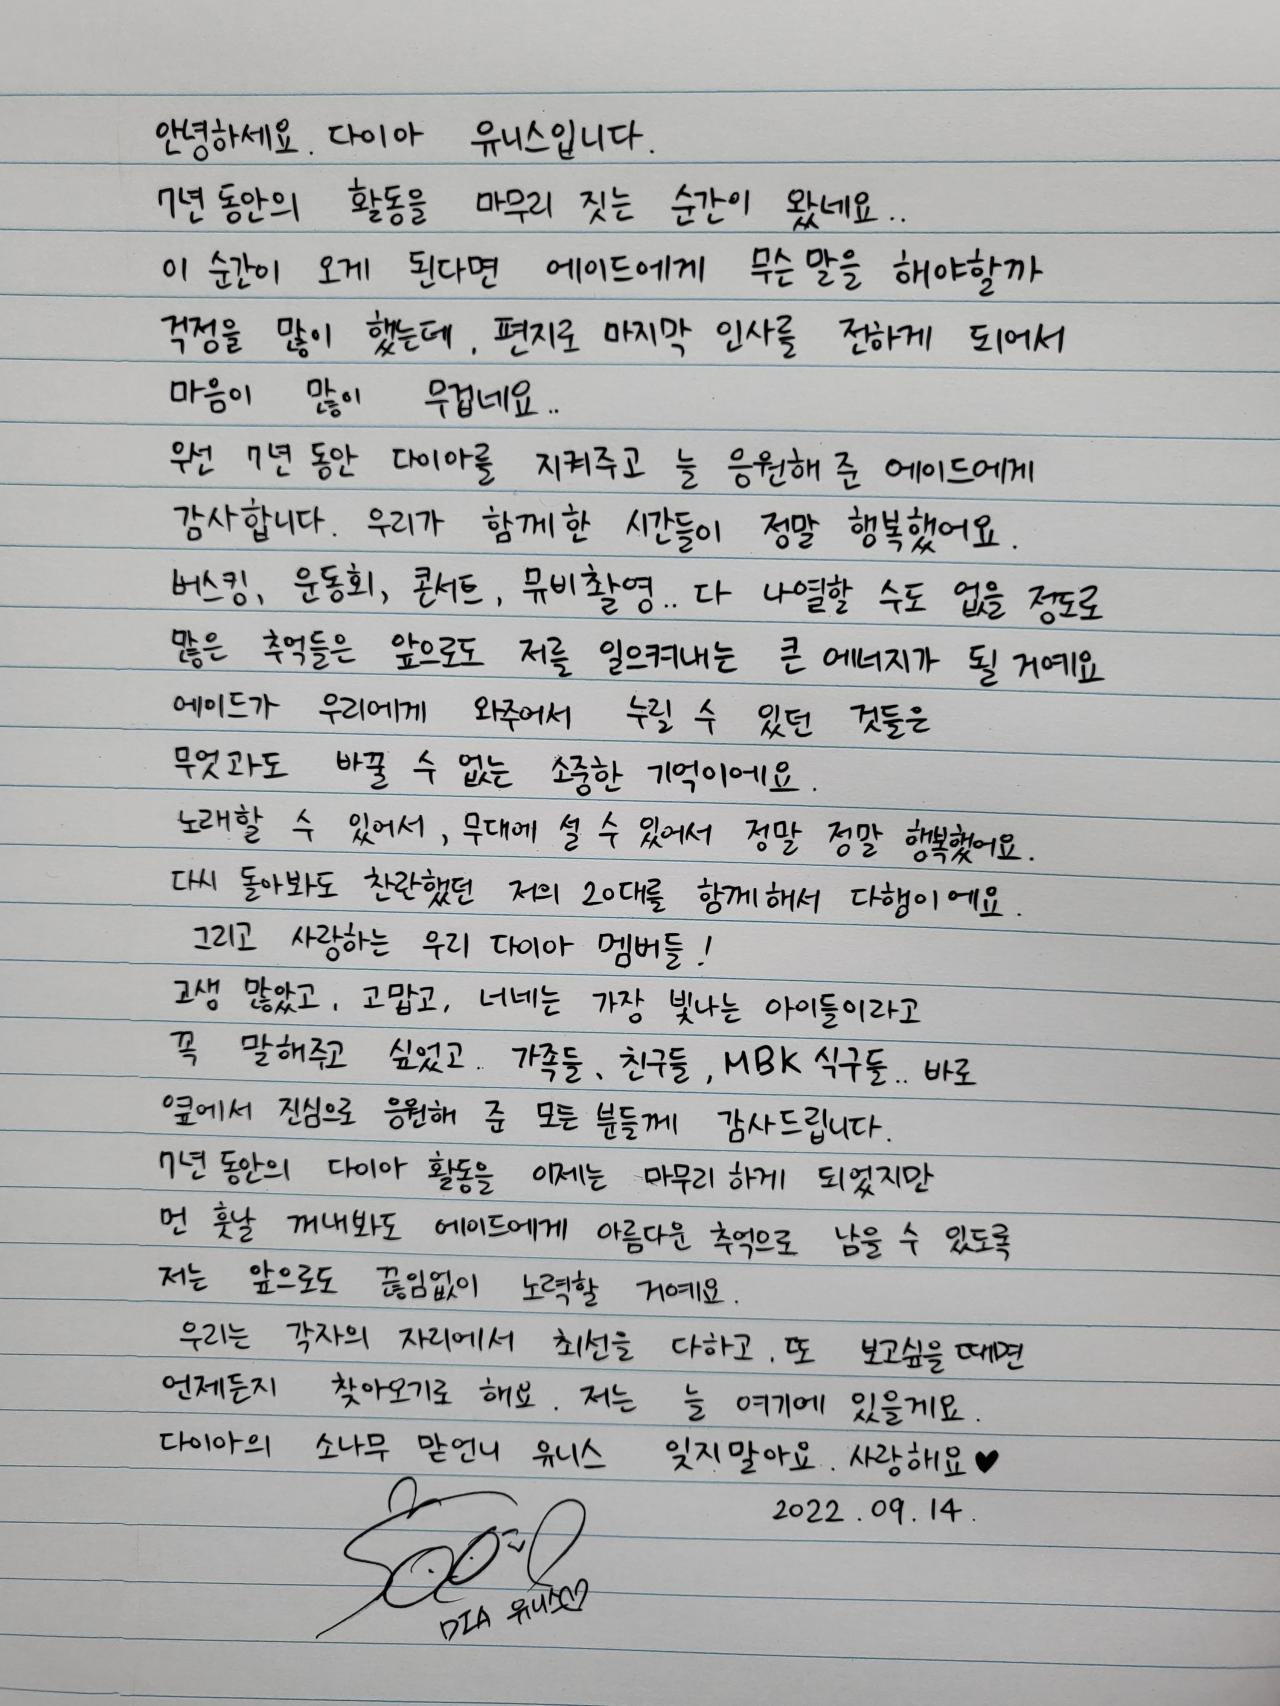 안녕하세요. 다이아 유니스입니다.
7년 동안의 활동을 마무리 짓는 순간이 왔네요..
이 순간이 오게 된다면 에이드에게 무슨 말을 해야할까
걱정을 많이 했는데, 편지로 마지막 인사를 전하게 되어서
마음이 많이 무겁네요..
우선 7년 동안 다이아를 지켜주고 늘 응원해 준 에이드에게
감사합니다. 우리가 함께한 시간들이 정말 행복했어요.
버스킹, 운동회, 콘서트, 뮤비촬영.. 다 나열할 수도 없을 정도로
많은 추억들은 앞으로도 저를 일으켜내는 큰 에너지가 될 거예요
에이드가 우리에게 와주어서 누릴 수 있던 것들은
무엇과도 바꿀 수 없는 소중한 기억이에요.
노래할 수 있어서, 무대에 설 수 있어서 정말 정말 행복했어요.
다시 돌아봐도 찬란했던 저의 20대를 함께해서 다행이에요.
그리고 사랑하는 우리 다이아 멤버들!
고생 많았고, 고맙고, 너네는 가장 빛나는 아이들이라고
꼭 말해주고 싶었고.. 가족들, 친구들, MBK 식구들.. 바로
옆에서 진심으로 응원해 준 모든 분들께 감사드립니다.
7년 동안의 다이아 활동을 이제는 마무리하게 되었지만
먼 훗날 꺼내봐도 에이드에게 아름다운 추억으로 남을 수 있도록
저는 앞으로도 끊임없이 노력할 거예요.
우리는 각자의 자리에서 최선을 다하고, 또 보고싶을 때면
언제든지 찾아오기로 해요. 저는 늘 여기에 있을게요.
다이아의 소나무 맏언니 유니스 잊지말아요. 사랑해요♥
2022.09.14.
DIA 유니스♡